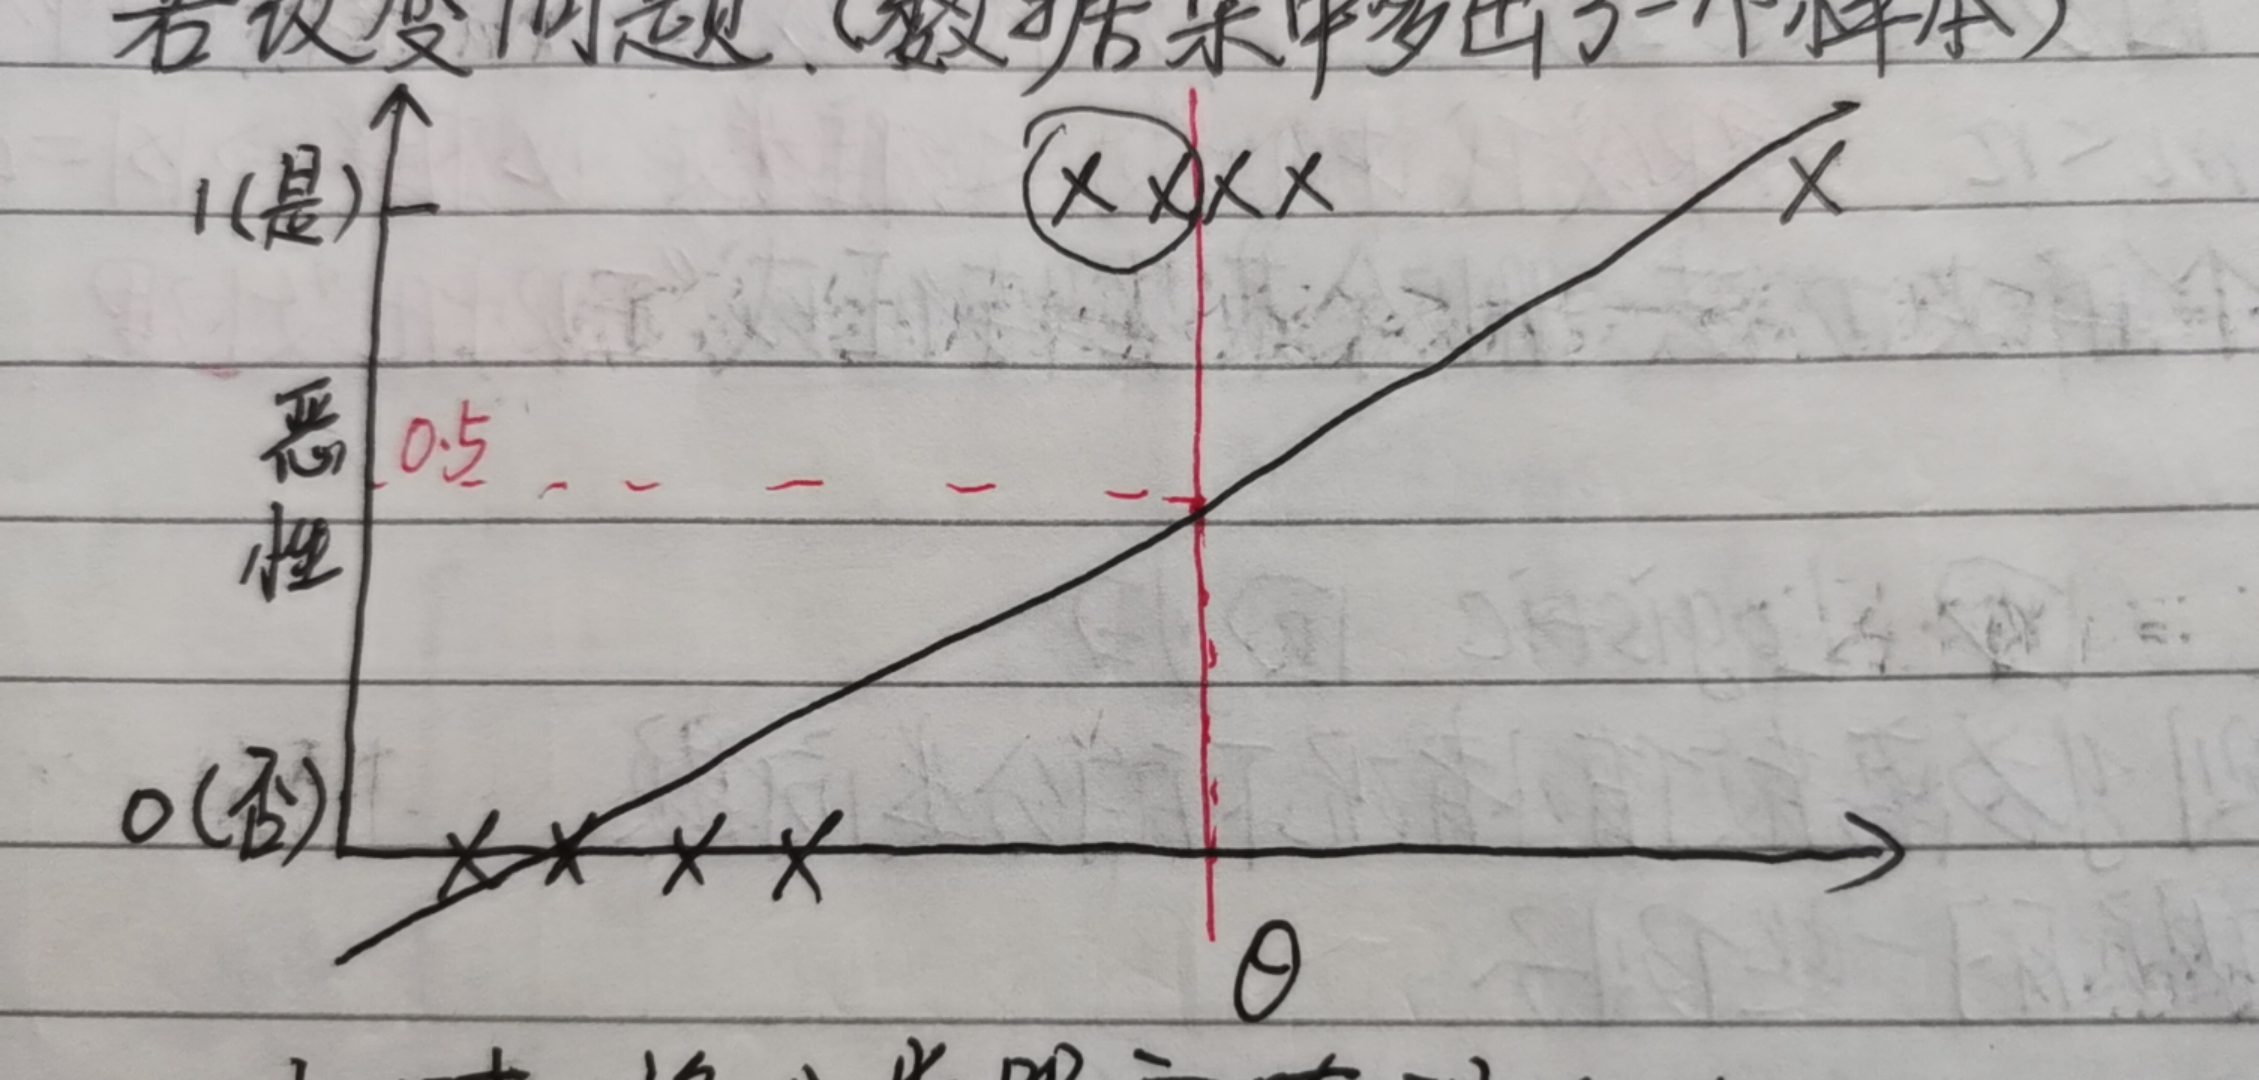 若改变问题.（数据集中多出了一个样本）
1(是)
恶性
0.5
0(否)
θ